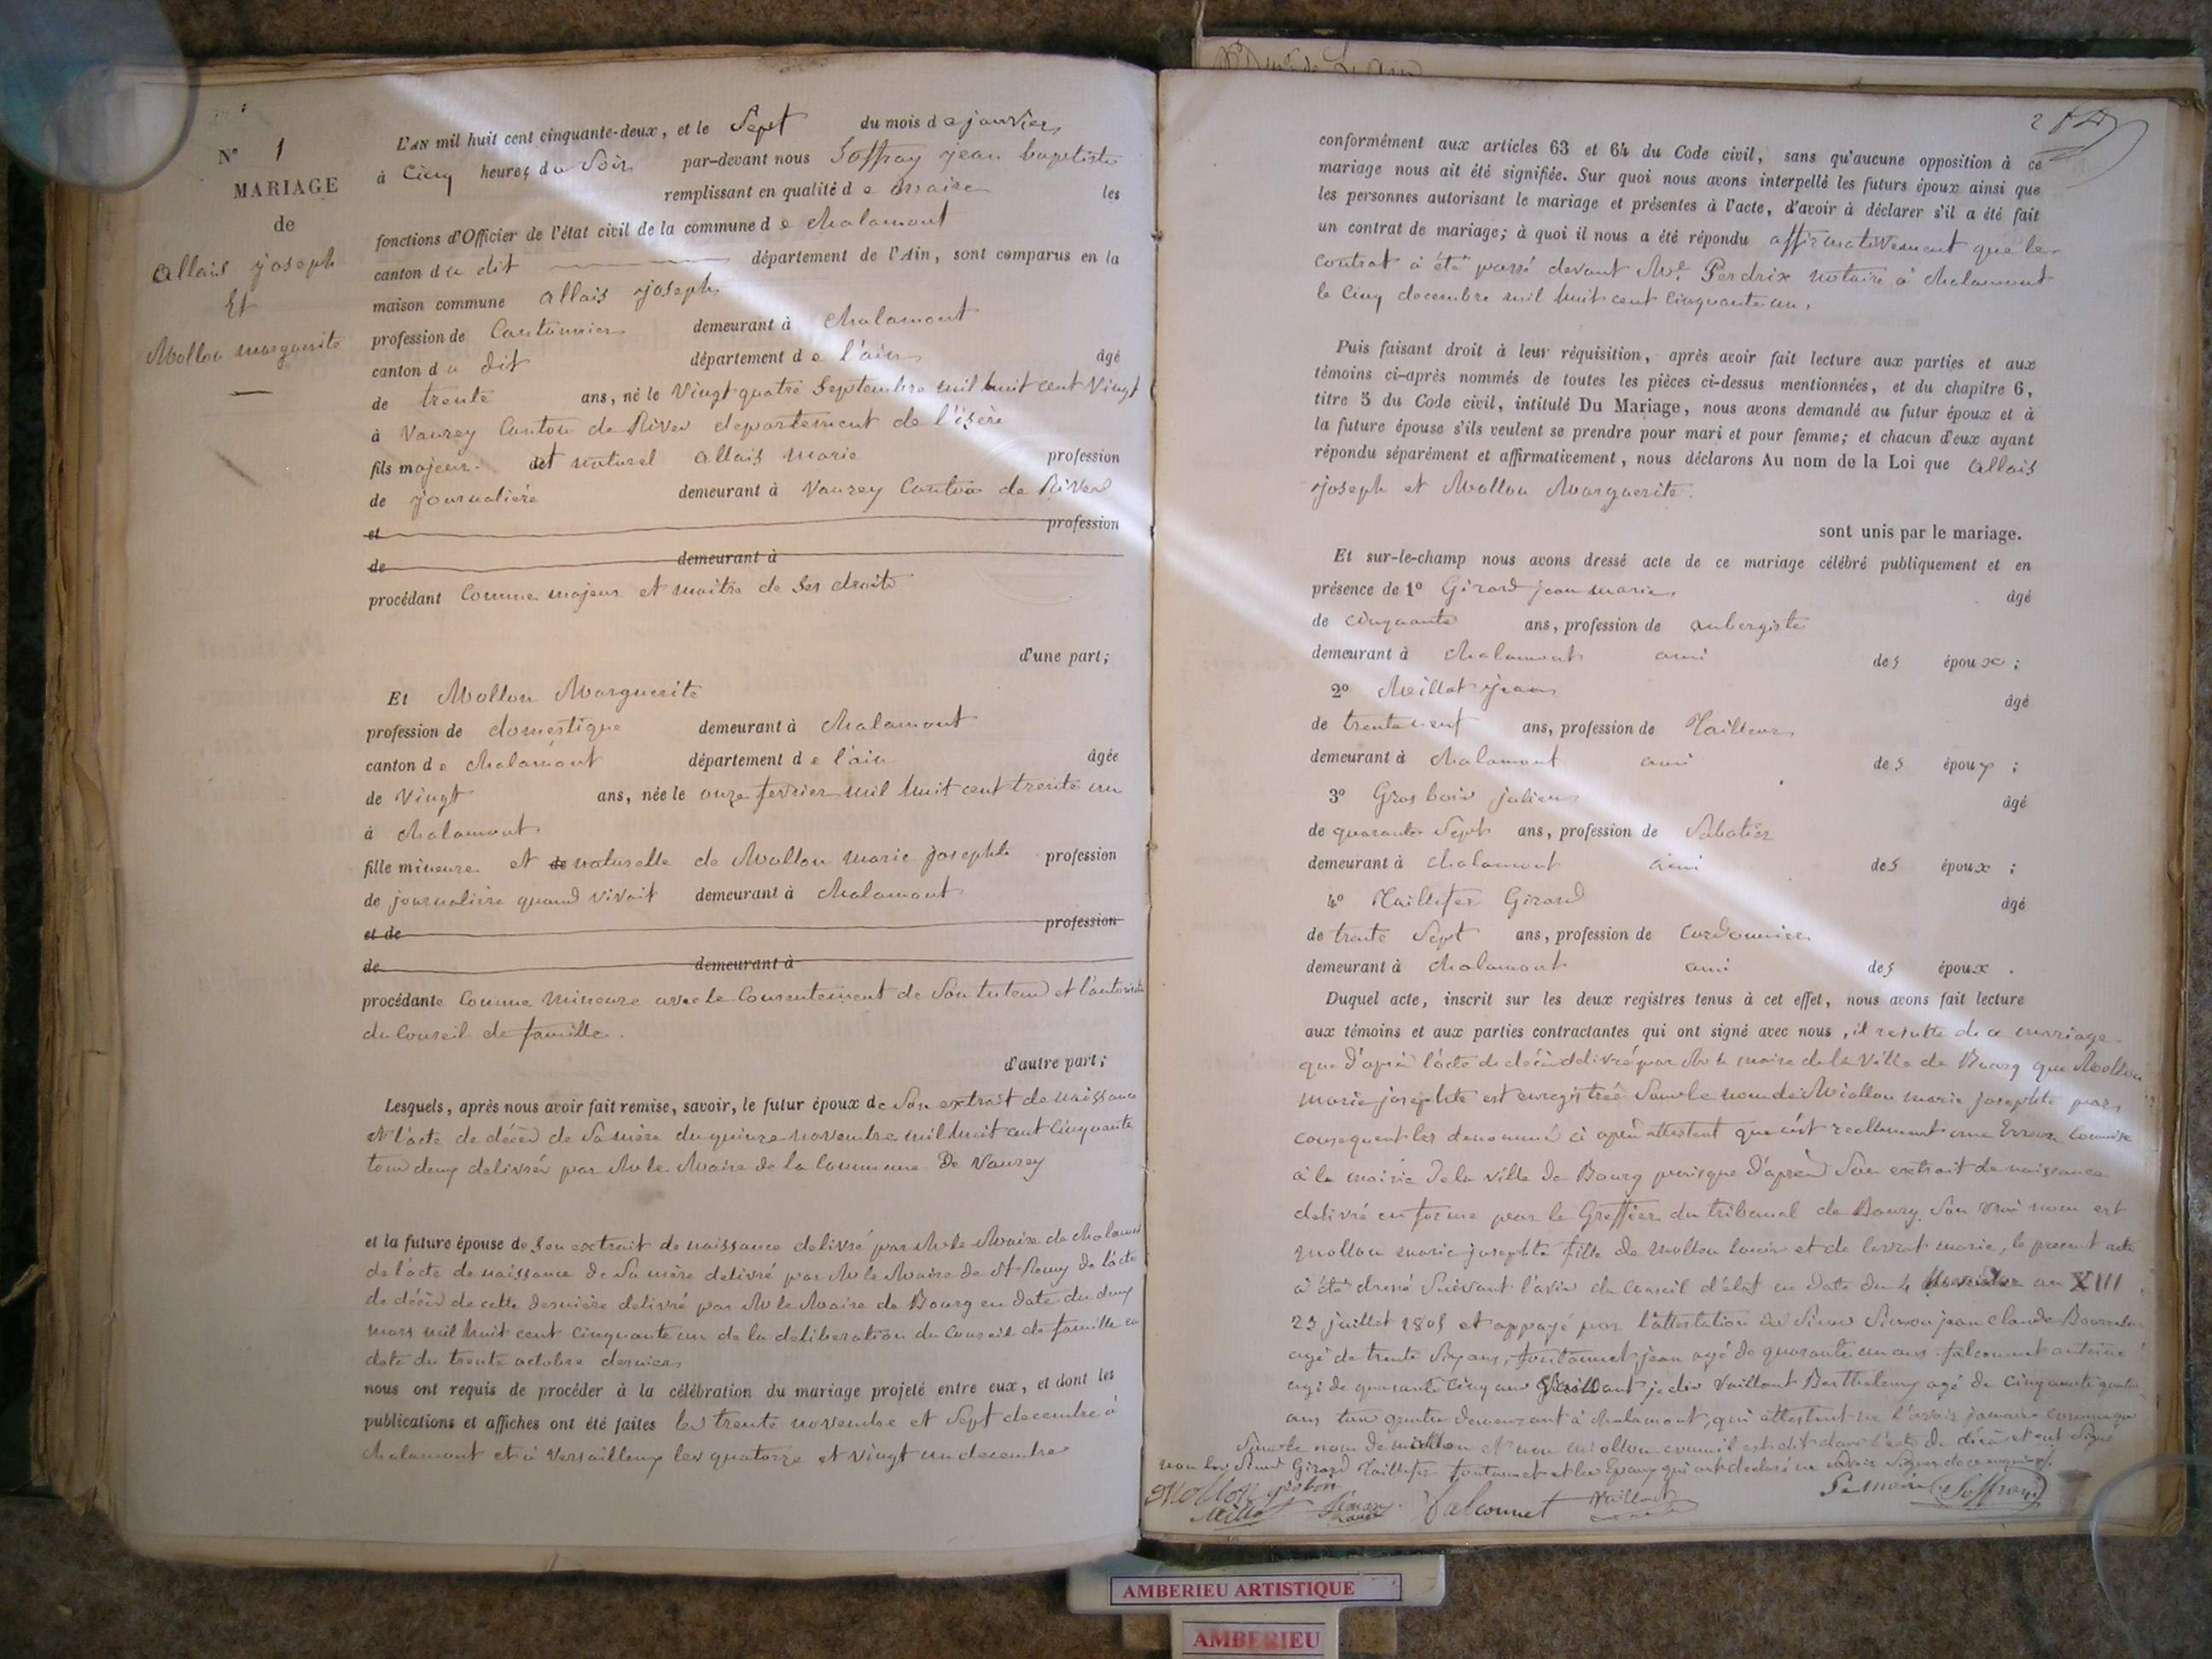 N° 1
MARIAGE
de
Allais joseph
Et
Mollon marguerite
L'AN mil huit cent cinquante-deux, et le Sept du mois de janvier
à Cinq heures du Soir par-devant nous Soffray jean baptiste
remplissant en qualité de maire les
fonctions d'Officier de l'état civil de la commune de chalamont
canton du dit département de l'Ain, sont comparus en la
maison commune allais joseph
profession de Cantonnier demeurant à chalamont
canton du dit département de l'ain âgé
de trente ans, né le Vingt quatre Septembre mil huit cent Vingt
à Vaurey Canton de Rives département de l'isère
fils majeur et naturel allais marie profession
de journalière demeurant à Vaurey Canton de Rives
et profession
de demeurant à
procédant Comme majeur et maître de Ses droits
d'une part;
Et Mollon Marguerite
profession de domestique demeurant à chalamont
canton de chalamont département de l'ain âgée
de Vingt ans, née le onze février mil huit cent trente un
à chalamont
fille mineure et de naturelle de Mollon marie josephte profession
de journalière quand vivait demeurant à chalamont
et de profession
de demeurant à
procédante Comme mineure avec le Consentement de Son tuteur et l'autorisation
du Conseil de famille.
d'autre part;
Lesquels, après nous avoir fait remise, savoir, le futur époux de Son extrait de naissance
et l'acte de décès de Sa mère du quinze novembre mil huit cent Cinquante
tous deux delivrés par Mr le Maire de la Commune De Vaurey
et la future épouse de Son extrait de naissance delivré par Mr le Maire de chalamont
de l'acte de naissance de Sa mère delivré par Mr le Maire de St Remy de l'acte
de décès de cette dernière delivré par Mr le Maire de Bourg en date du deux
mars mil huit cent cinquante un de la deliberation du Conseil de famille en
date du trente octobre dernier
nous ont requis de procéder à la célébration du mariage projeté entre eux, et dont les
publications et affiches ont été faites les trente novembre et Sept decembre à
chalamont et à Versailleux les quatorze et vingt un decembre
conformément aux articles 63 et 64 du Code civil, sans qu'aucune opposition à ce
mariage nous ait été signifiée. Sur quoi nous avons interpellé les futurs époux ainsi que
les personnes autorisant le mariage et présentes à l'acte, d'avoir à déclarer s'il a été fait
un contrat de mariage; à quoi il nous a été répondu affirmativement que le
Contrat à été passé devant Me Perdrix notaire à chalamont
le Cinq decembre mil huit cent Cinquante un,
Puis faisant droit à leur réquisition, après avoir fait lecture aux parties et aux
témoins ci-après nommés de toutes les pièces ci-dessus mentionnées, et du chapitre 6,
titre 5 du Code civil, intitulé Du Mariage, nous avons demandé au futur époux et à
la future épouse s'ils veulent se prendre pour mari et pour femme; et chacun d'eux ayant
répondu séparément et affirmativement, nous déclarons Au nom de la Loi que Allais
joseph et Mollon Marguerite
sont unis par le mariage.
Et sur-le-champ nous avons dressé acte de ce mariage célébré publiquement et en
présence de 1° Girard jean marie, âgé
de cinquante ans, profession de aubergiste
demeurant à chalamont ami des époux;
2° Meillat jean âgé
de trente neuf ans, profession de Tailleur
demeurant à chalamont ami des époux;
3° Gros bois julien âgé
de quarante Sept ans, profession de Sabotier
demeurant à chalamont ami des époux;
4° Taillefer Girard âgé
de trente Sept ans, profession de Cordonnier
demeurant à chalamont ami des époux.
Duquel acte, inscrit sur les deux registres tenus à cet effet, nous avons fait lecture
aux témoins et aux parties contractantes qui ont signé avec nous, il resulte de ce mariage
que d'après l'acte de décès delivré par Mr le maire de la Ville de Bourg que Mollon
marie josephte est enregistrée Sous le nom de Miollon marie josephte par
consequent les denommés ci après attestent que c'est reellement une Erreur Commise
à la mairie de la ville de Bourg puisque d'après Son extrait de naissance
delivré en forme par le Greffier du tribunal de Bourg Son vrai nom est
mollon marie josephte fille de mollon louis et de marie, le present acte
à été dressé Suivant l'avis du Conseil d'état en date du 4 an XIII
23 juillet 1805 et appuyé par l'attestation des Sieurs Simon jean claude
agé de trente Six ans, fontannet jean agé de quarante un ans falconnet antoine
agé de quarante Cinq ans je dis Vaillant Barthelemy agé de Cinquante quatre
ans tous quatre demeurant à chalamont, qui attestent ne l'avoir jamais
Sous le nom de mollon et non miollon comme il est dit dans l'acte de décès et ont Signé
non les Sieurs Girard Taillefer fontannet et les Epoux qui ont declaré ne savoir Signer de ce enquis
Mollon
Simon
Falconnet
Vaillant
Soffray
AMBERIEU ARTISTIQUE
AMBERIEU